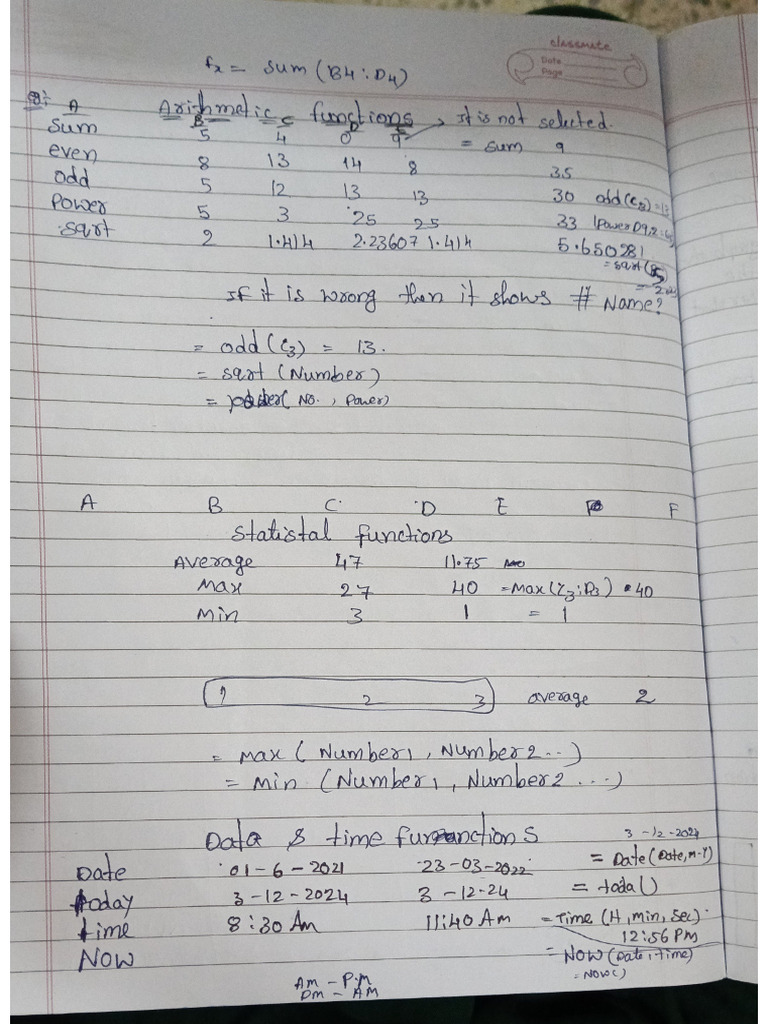 classmate
Date
Page
fx = sum (B4:D4)
Q: A Arithmetic functions → It is not selected.
B C D E
sum 5 4 0 9 = sum 9
even 8 13 14 8 35
odd 5 12 13 13 30 odd(C3)=13
Power 5 3 25 25 33
sqrt 2 1.414 2.23607 1.414 5.650281
= sqrt(
If it is wrong then it shows # Name?
= odd (C3) = 13.
= sqrt (Number)
= (No., Power)
A B C D E F
Statistal functions
Average 47 11.75
Max 27 40 = Max( :D3) 40
Min 3 1 = 1
1 2 3 average 2
= Max (Number1, Number2..)
= Min (Number1, Number2 ...)
Data & time functions
3-12-2024
Date 01-6-2021 23-03-2022 = Date(Date, M-Y)
today 3-12-2024 3-12-24 = toda()
time 8:30 Am 11:40 Am = Time (H, min, Sec)
12:56 PM
NOW = NOW (Date, time)
= NOW()
Am - P.M
Pm - AM